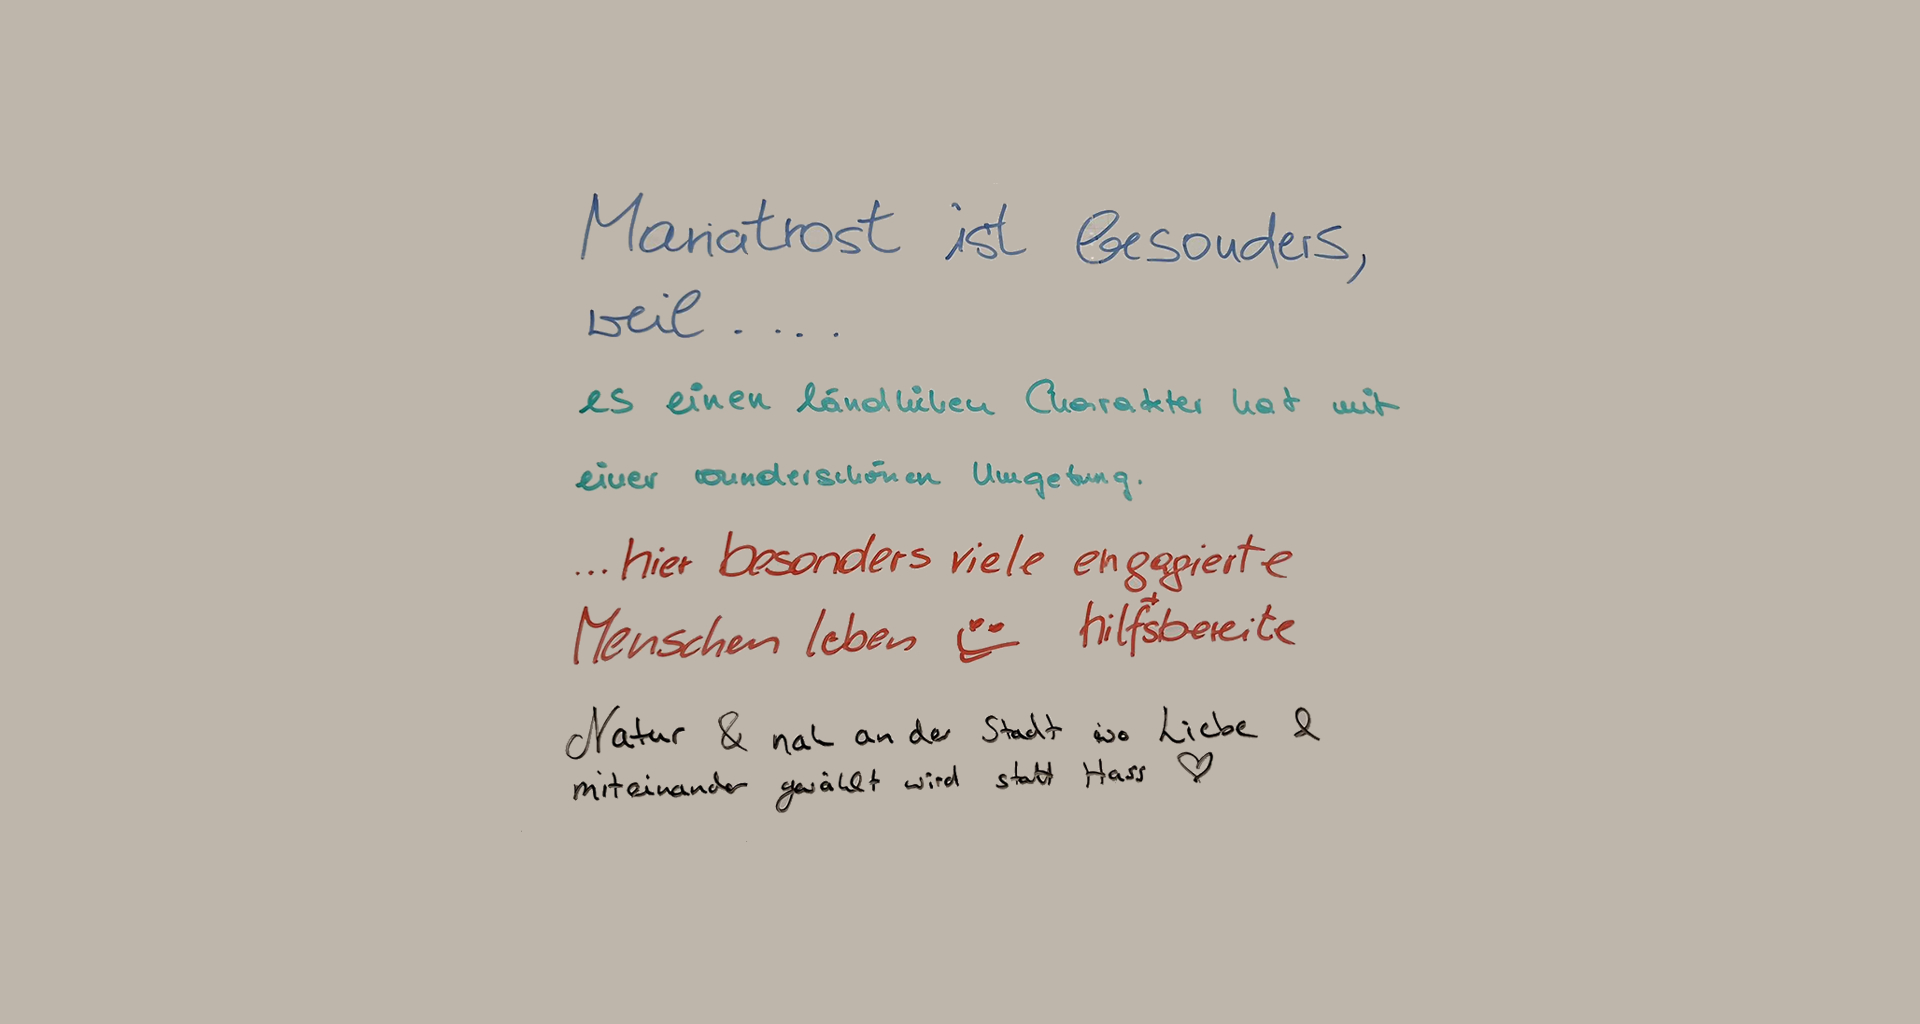 Mariatrost ist besonders,
weil ....
es einen ländlichen Charakter hat mit
einer wunderschönen Umgebung.
...hier besonders viele engagierte
Menschen leben + hilfsbereite
Natur & nah an der Stadt wo Liebe &
miteinander gewählt wird statt Hass ♡